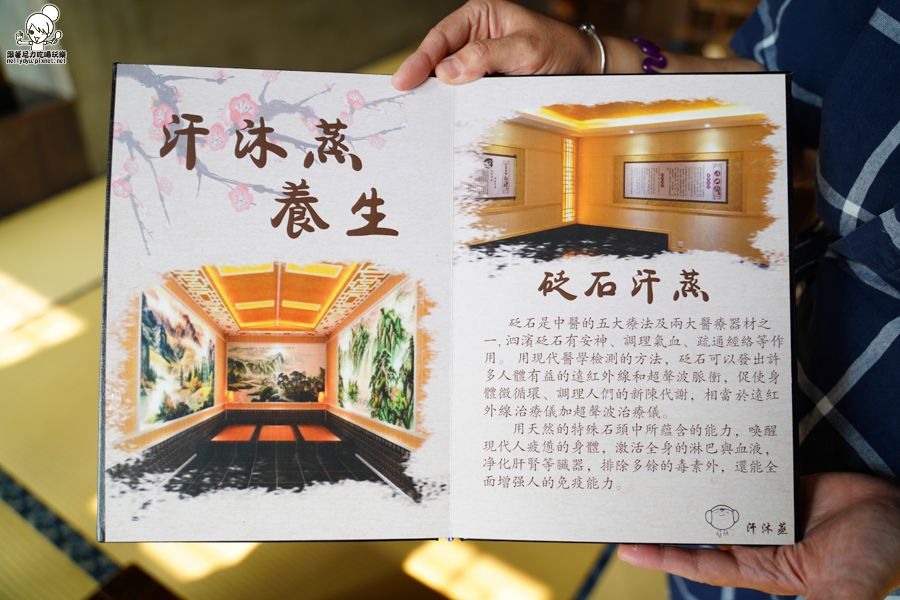 跟著尼力吃喝玩樂
nellydyu.pixnet.net
汗沐蒸
養生
砭石汗蒸
砭石是中醫的五大療法及兩大醫療器材之
一,泗濱砭石有安神、調理氣血、疏通經絡等作
用。用現代醫學檢測的方法,砭石可以發出許
多人體有益的遠紅外線和超聲波脈衝,促使身
體微循環、調理人們的新陳代謝,相當於遠紅
外線治療儀加超聲波治療儀。
用天然的特殊石頭中所蘊含的能力,喚醒
現代人疲憊的身體,激活全身的淋巴與血液,
凈化肝腎等臟器,排除多餘的毒素外,還能全
面增强人的免疫能力。
汗沐蒸